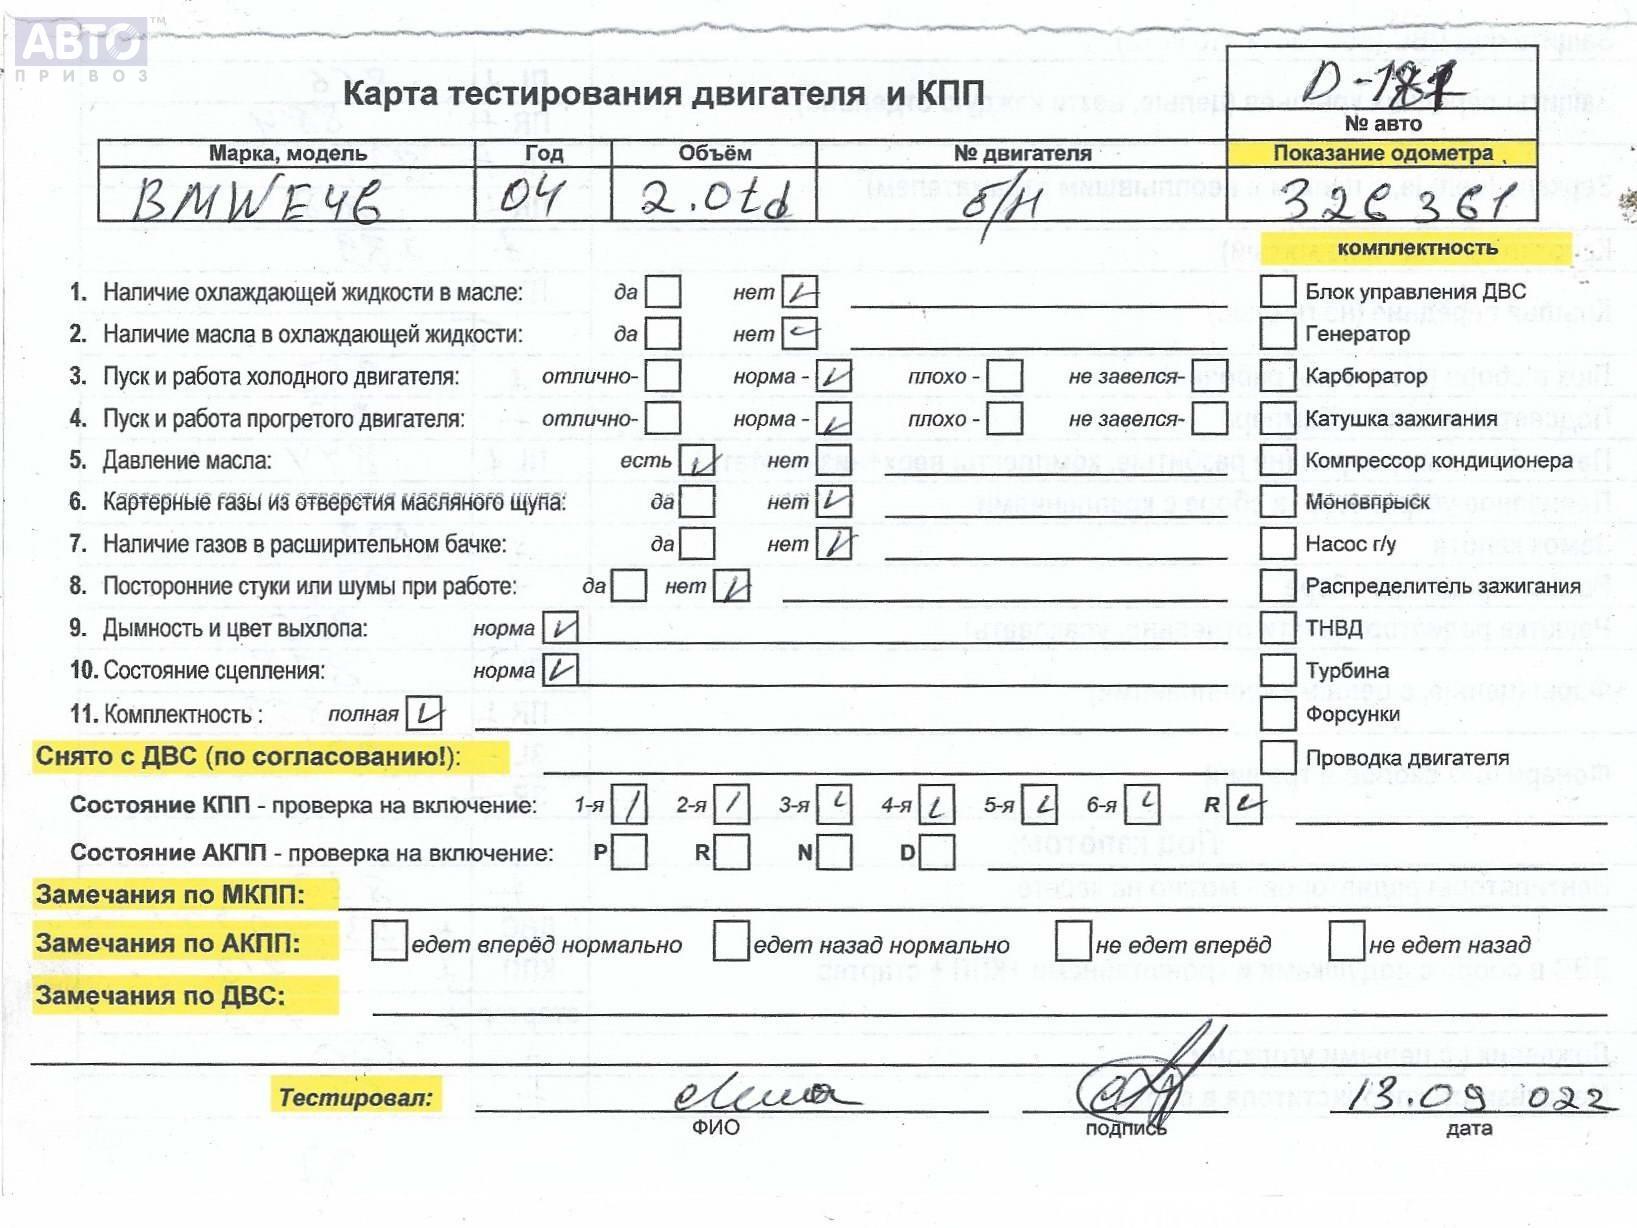 АВТО™
ПРИВОЗ
Карта тестирования двигателя и КПП
№ авто
Марка, модель Год Объём № двигателя Показание одометра
BMW E46 04 2.0td б/н 326361
комплектность
1. Наличие охлаждающей жидкости в масле: да нет Блок управления ДВС
2. Наличие масла в охлаждающей жидкости: да нет Генератор
3. Пуск и работа холодного двигателя: отлично- норма - плохо - не завелся- Карбюратор
4. Пуск и работа прогретого двигателя: отлично- норма - плохо - не завелся- Катушка зажигания
5. Давление масла: есть нет Компрессор кондиционера
6. Картерные газы из отверстия масляного щупа: да нет Моновпрыск
7. Наличие газов в расширительном бачке: да нет Насос г/у
8. Посторонние стуки или шумы при работе: да нет Распределитель зажигания
9. Дымность и цвет выхлопа: норма ТНВД
10. Состояние сцепления: норма Турбина
11. Комплектность : полная Форсунки
Снято с ДВС (по согласованию!): Проводка двигателя
Состояние КПП - проверка на включение: 1-я 2-я 3-я 4-я 5-я 6-я R
Состояние АКПП - проверка на включение: P R N D
Замечания по МКПП:
Замечания по АКПП: едет вперёд нормально едет назад нормально не едет вперёд не едет назад
Замечания по ДВС:
Тестировал: 13.09 022
ФИО подпись дата